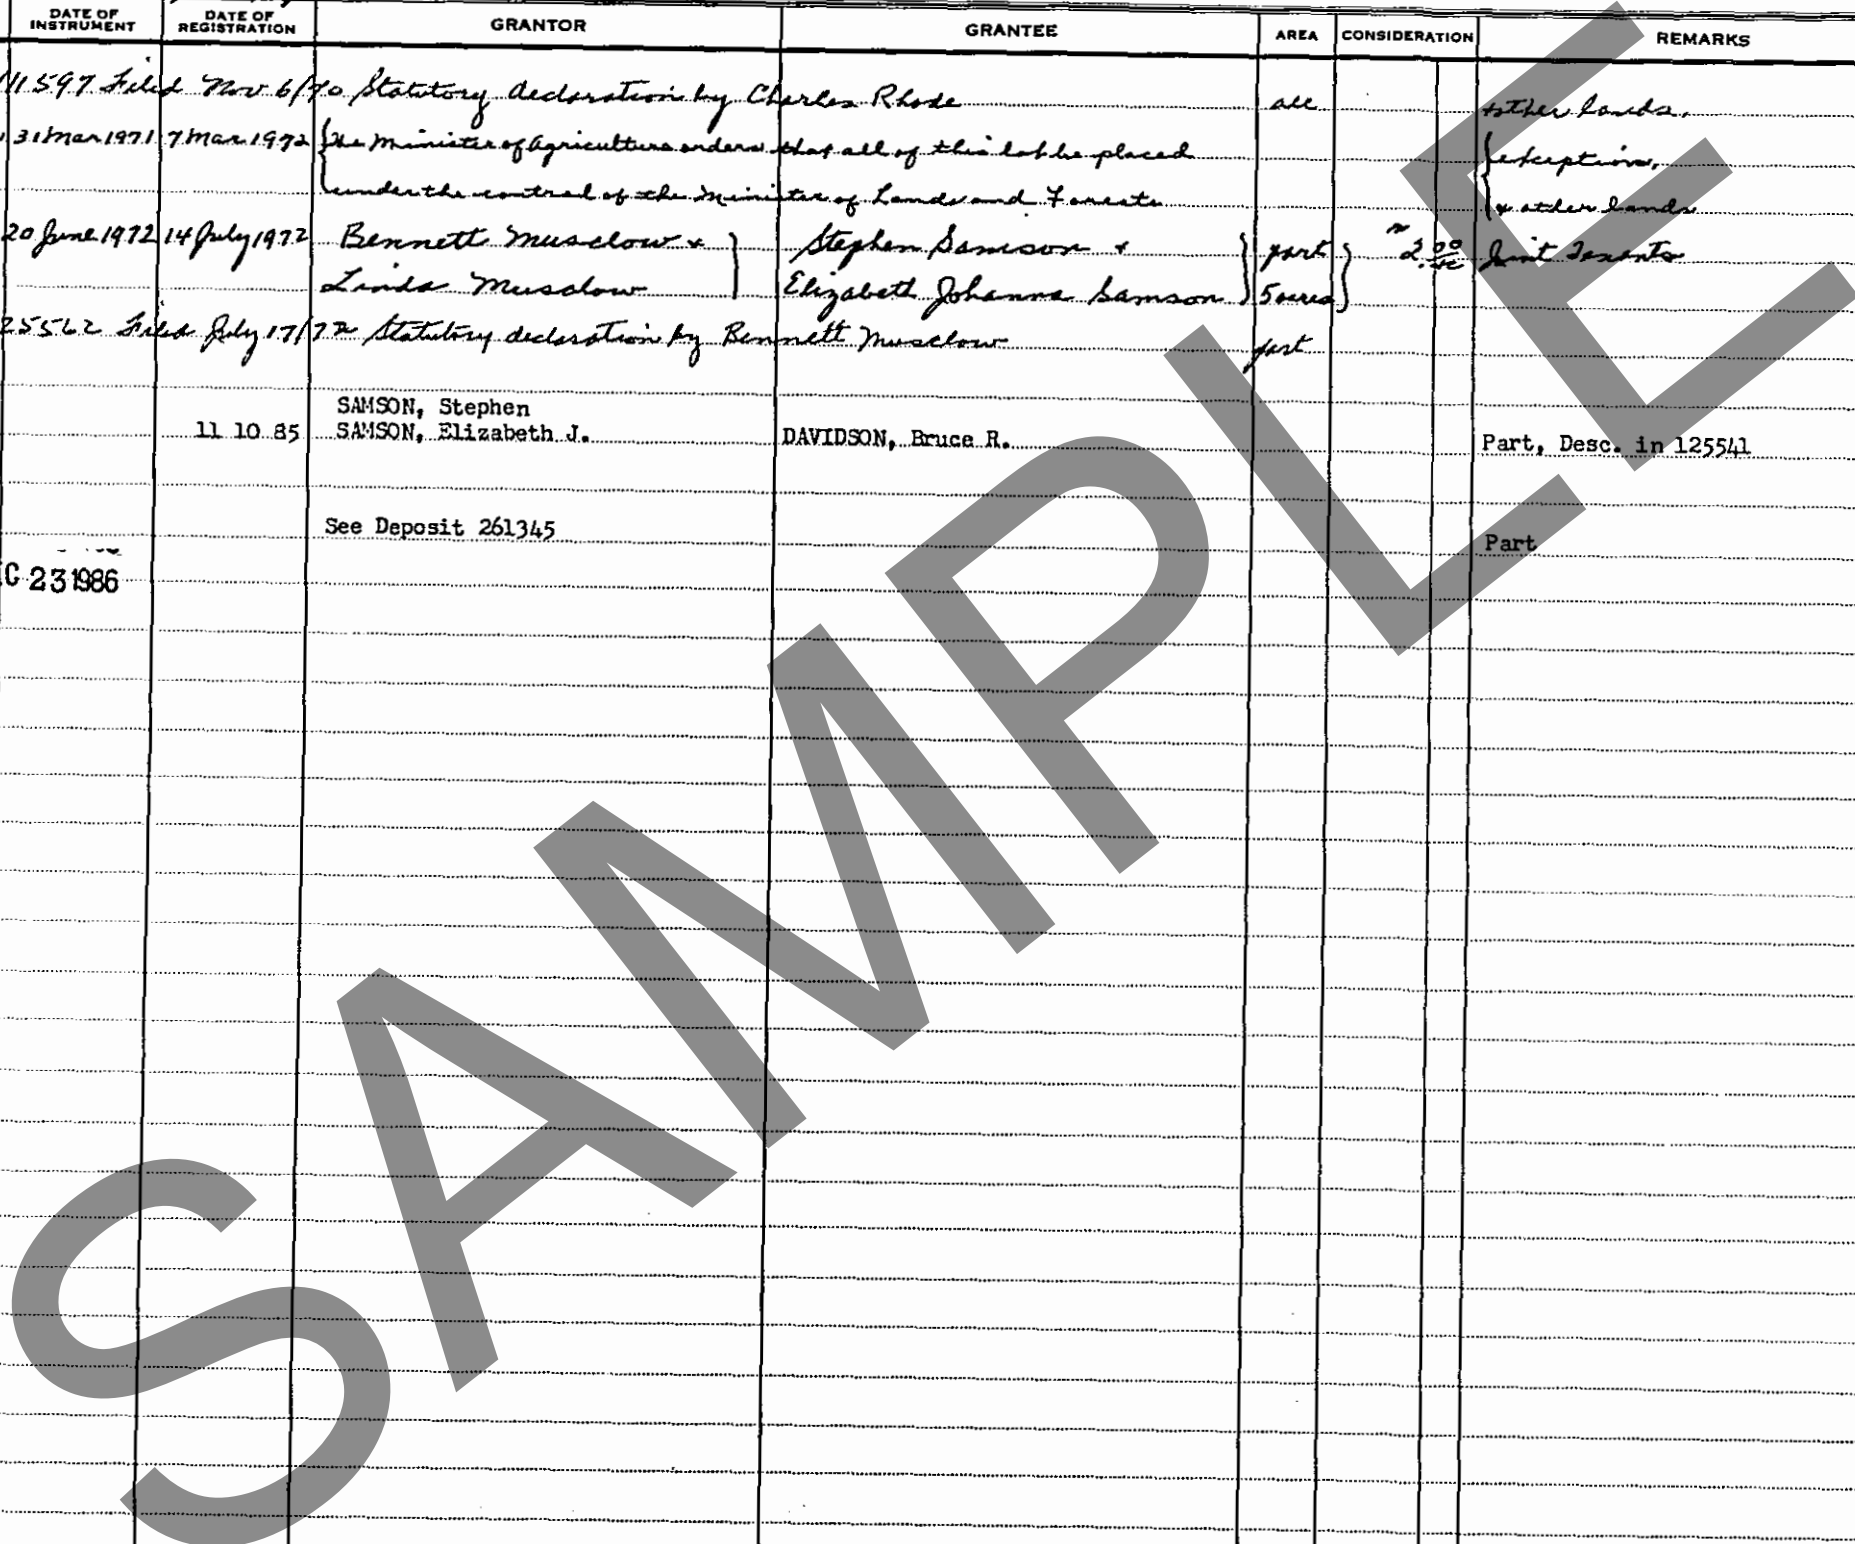 DATE OF INSTRUMENT DATE OF REGISTRATION GRANTOR GRANTEE AREA CONSIDERATION REMARKS
11597 Filed Nov 6/70 Statutory declaration by Charles Rhode all + other lands.
31 Mar 1971 7 Mar 1972 The Minister of Agriculture orders that all of this lot be placed exceptions,
under the control of the Minister of Lands and Forests & other lands
20 June 1972 14 July 1972 Bennett Musclow + Stephen Samson + part 2.00 Joint Tenants
Linda Musclow Elizabeth Johanna Samson 5 acres
25562 Filed July 17/72 Statutory declaration by Bennett Musclow part
SAMSON, Stephen
11 10 85 SAMSON, Elizabeth J. DAVIDSON, Bruce R. Part, Desc. in 125541
See Deposit 261345 Part
C 23 1986
SAMPLE